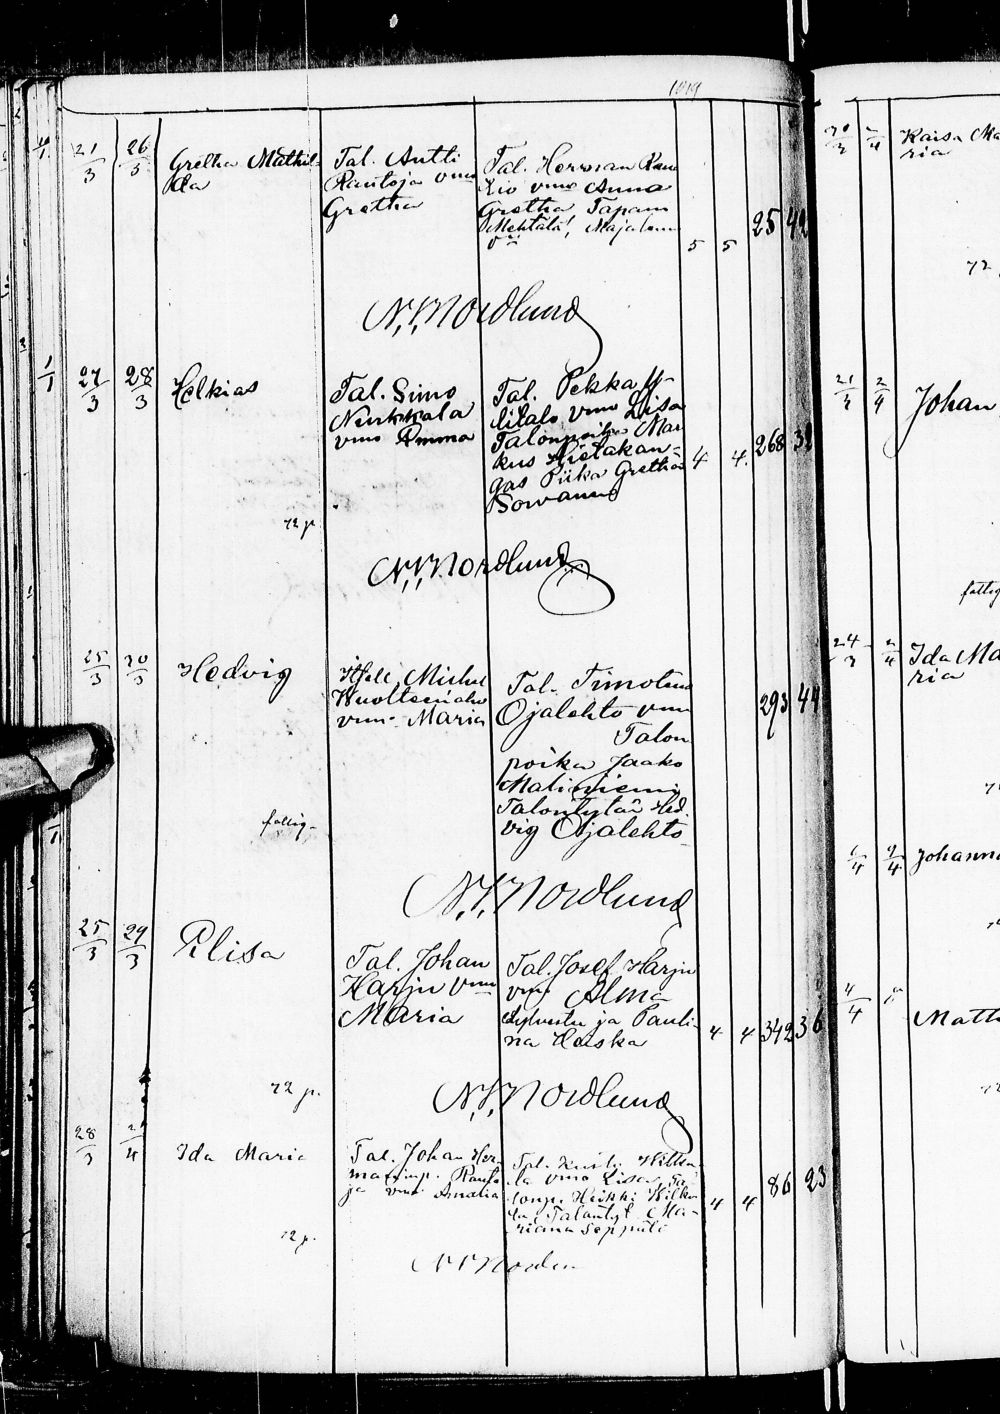 21/3 26/3 Gretha Mathil-
da
Tal. Antti
Rautoja vmo
Gretha
Tal. Herman Kau
kio vmo Anna
Gretha, Tapani
Mehtälä, Majalam
5 5 25 42
N. V. Nordlund
27/3 28/3 Helkias
Tal. Simo
Nurkkala
vmo Emma
Tal. Pekka Y-
litalo vmo Liisa
Talonpoika Mar
kus Hietakan-
gas Piika Gretha
Sorvanno
4 4. 268 32
72 p.
N. V. Nordlund
25/3 30/3 Hedvig
Itsell. Michel
Wuolteenaho
vmo Maria
Tal. Timoteus
Ojalehto vmo
Talon
poika Jaako
Matinniemi
Talontytär Hed.
vig Ojalehto
293 44
fattig.
N. V. Nordlund
25/3 29/3 Elisa
Tal. Johan
Harju vmo
Maria
Tal. Josef Harju
vmo Alma
Sylvester ja Pauli-
na Heiska
4 4 342 36
72 p.
N. V. Nordlund
28/3 Ida Maria
Tal. Johan Her-
manninp. Rauto
ja vmo Amalia
Tal. Kusti Wittka-
la vmo Liisa, Ta
lonp. Heikki Wilko
la, Talontyt. Ma-
riana Seppälä
4 4 86 23
72 p.
N V Norden
Kaisa Ma
ria
72
21/3 2/4 Johan
fattig
24/3 2/4 Ida Ma
ria
Johanna
4/4 Matt